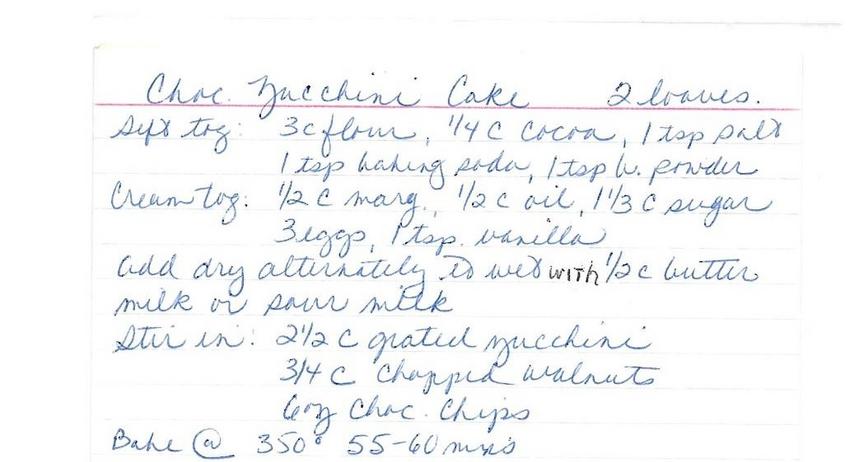 Choc. Zucchini Cake 2 loaves.
Sift tog: 3 c flour, 1/4 c cocoa, 1 tsp salt
1 tsp baking soda, 1 tsp b. powder
Cream tog: 1/2 c marg., 1/2 c oil, 1 1/3 c sugar
3 eggs, 1 tsp. vanilla
add dry alternately to wet with 1/2 c butter
milk or sour milk
Stir in: 2 1/2 c grated zucchini
3/4 c chopped walnuts
6 oz choc. chips
Bake @ 350° 55-60 mins